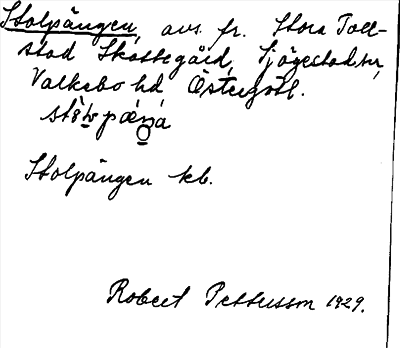 Stolpängen, avs. fr. Stora Toll-
stad Skattegård, Sjögestad sn,
Valkebo hd Östergötl.
Stolpängen kb.
Robert Pettersson 1929.